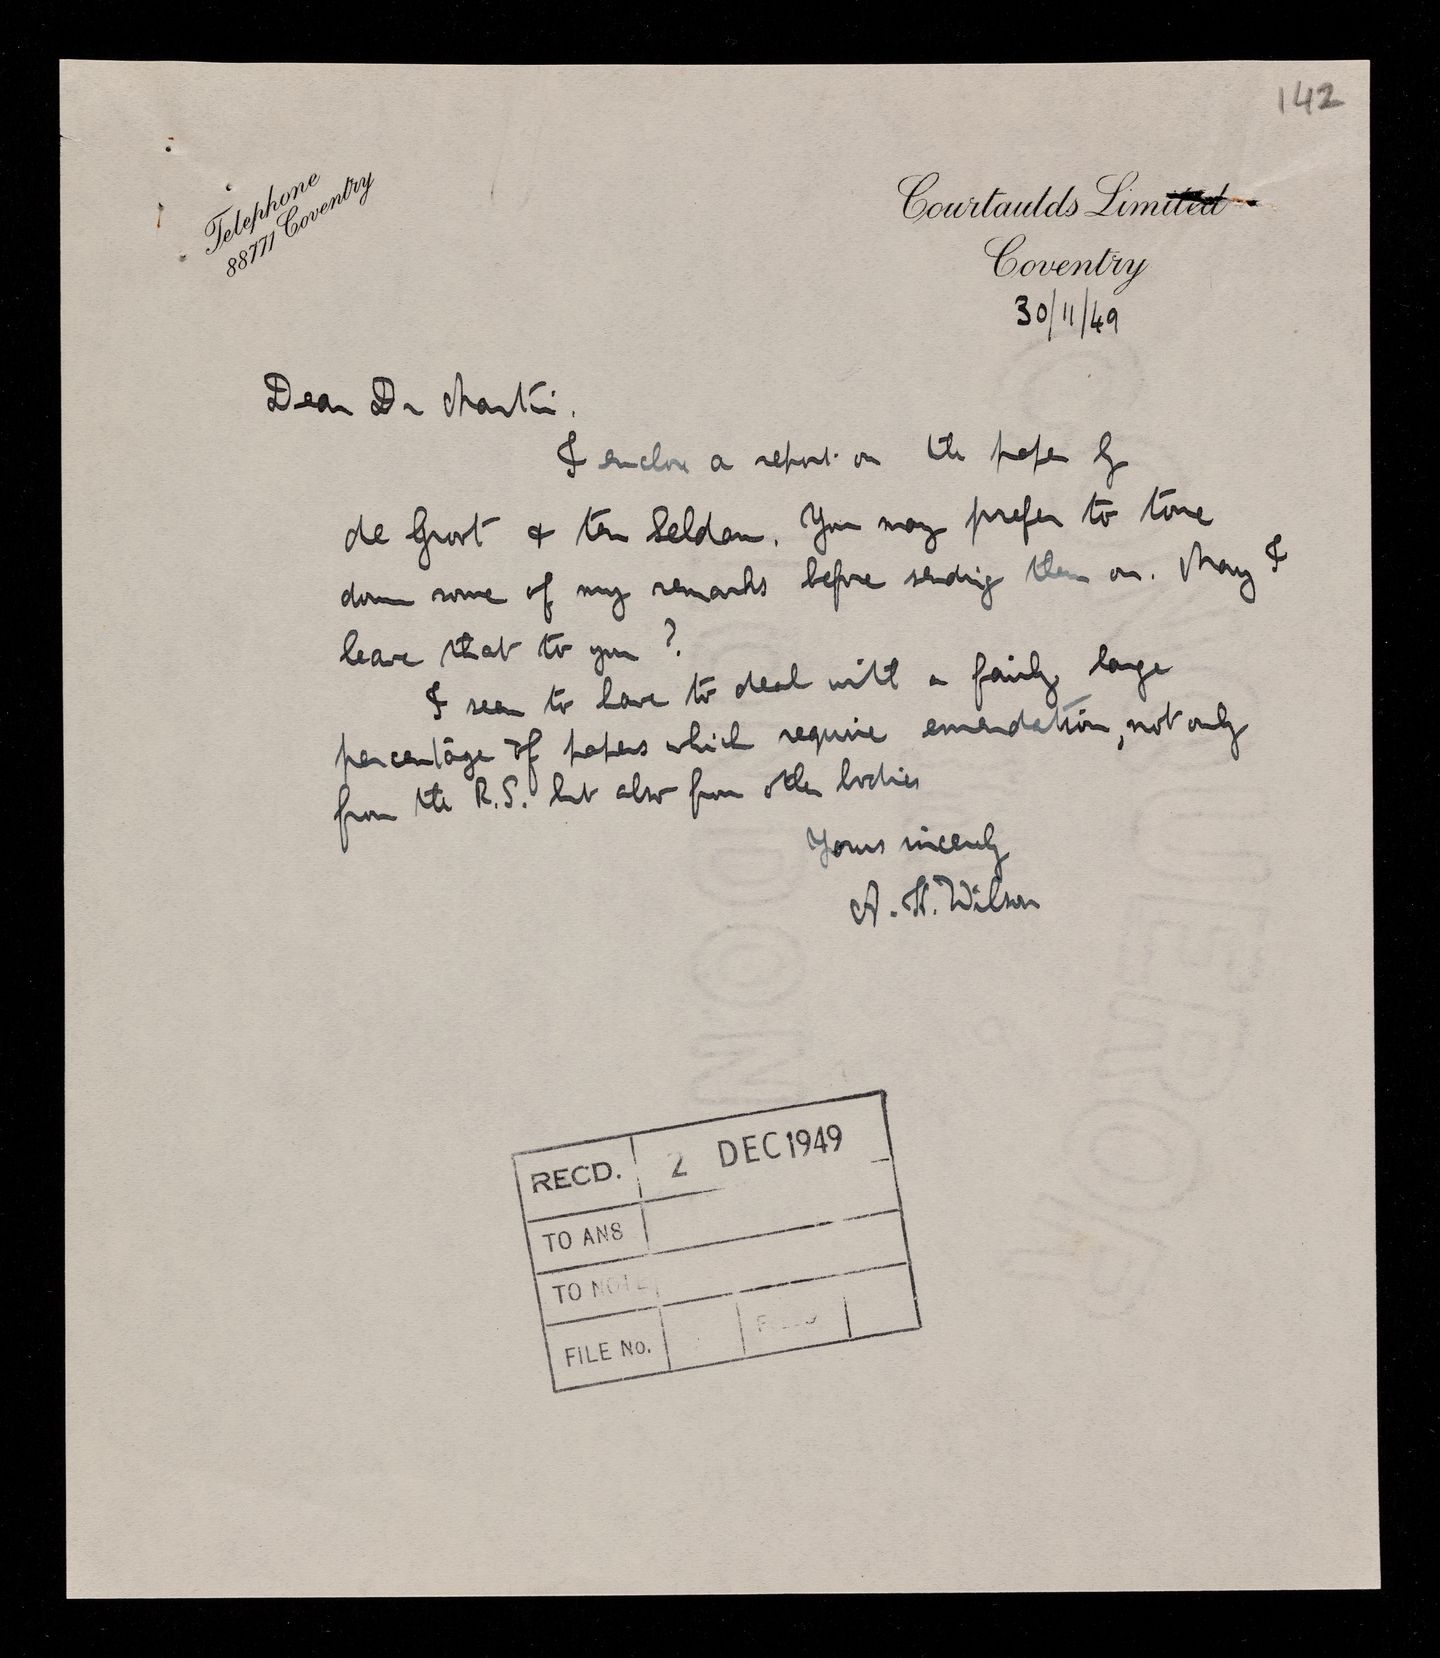 142
Telephone
88771 Coventry
Courtaulds Limited
Coventry
30/11/49
Dear Dr Martin.
I enclose a report on the paper by
de Groot & ten Seldam. You may prefer to tone
down some of my remarks before sending them on. May I
leave that to you?
I seem to have to deal with a fairly large
percentage of papers which require emendation, not only
from the R.S. but also from other bodies
Yours sincerely
A. H. Wilson
RECD. 2 DEC 1949
TO ANS
TO NOTE
FILE No.
CONQUEROR
LONDON